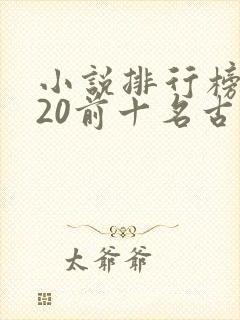 小説排行榜
20前十名古
太爺爺